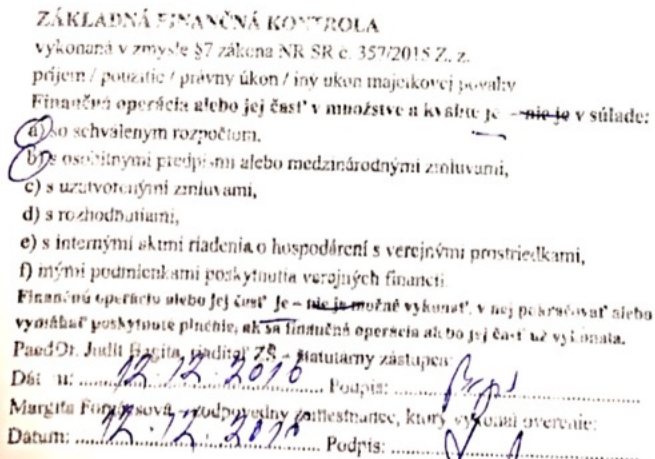 ZÁKLADNÁ FINANČNÁ KONTROLA
vykonaná v zmysle §7 zákona NR SR č. 357/2015 Z. z.
príjem / použitie / právny úkon / iný úkon majetkovej povahy
Finančná operácia alebo jej časť v množstve a kvalite je – nie je v súlade:
a) so schváleným rozpočtom,
b) s osobitnými predpismi alebo medzinárodnými zmluvami,
c) s uzatvorenými zmluvami,
d) s rozhodnutiami,
e) s internými aktmi riadenia o hospodárení s verejnými prostriedkami,
f) inými podmienkami poskytnutia verejných financií.
Finančnú operáciu alebo jej časť je – nie je možné vykonať, v nej pokračovať alebo
vymáhať poskytnuté plnenie, ak sa finančná operácia alebo jej časť už vykonala.
PaedDr. Judit riaditeľ ZŠ – štatutárny zástupca:
Dátum: 12.12.2016 Podpis:
Margita zodpovedný zamestnanec, ktorý vykonal overenie:
Dátum: 12.12.2016 Podpis: